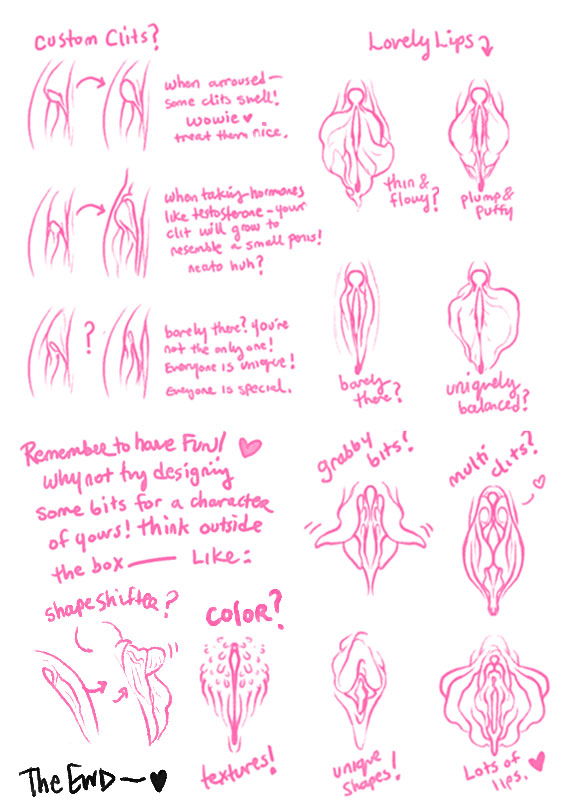 Custom Clits?
when arroused—
some clits swell!
wowie ♥
treat them nice.
when taking hormones
like testosterone - your
clit will grow to
resemble a small penis!
neato huh?
?
barely there? you're
not the only one!
Everyone is unique!
Everyone is special.
Lovely Lips
thin &
flowy?
plump &
puffy
barely
there?
uniquely
balanced?
Remember to have Fun! ♥
why not try designing
some bits for a character
of yours! think outside
the box — Like:
grabby
bits!
multi
clits?
shapeshifter?
color?
textures!
unique
shapes!
Lots of
lips. ♥
The End — ♥